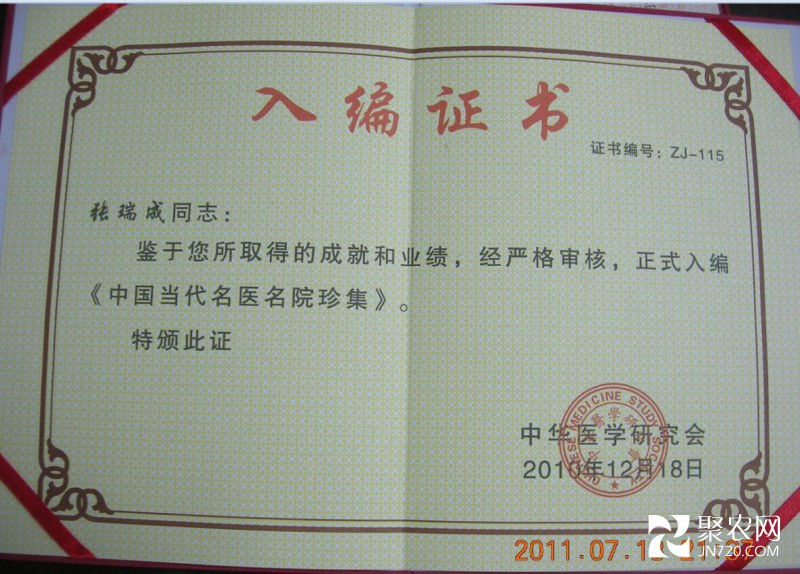 入编证书
证书编号：ZJ-115
张瑞成同志：
鉴于您所取得的成就和业绩，经严格审核，正式入编
《中国当代名医名院珍集》。
特颁此证
中华医学研究会
2010年12月18日
CHINESE MEDICINE STUDY SOCIETY
聚农网
JN720.com